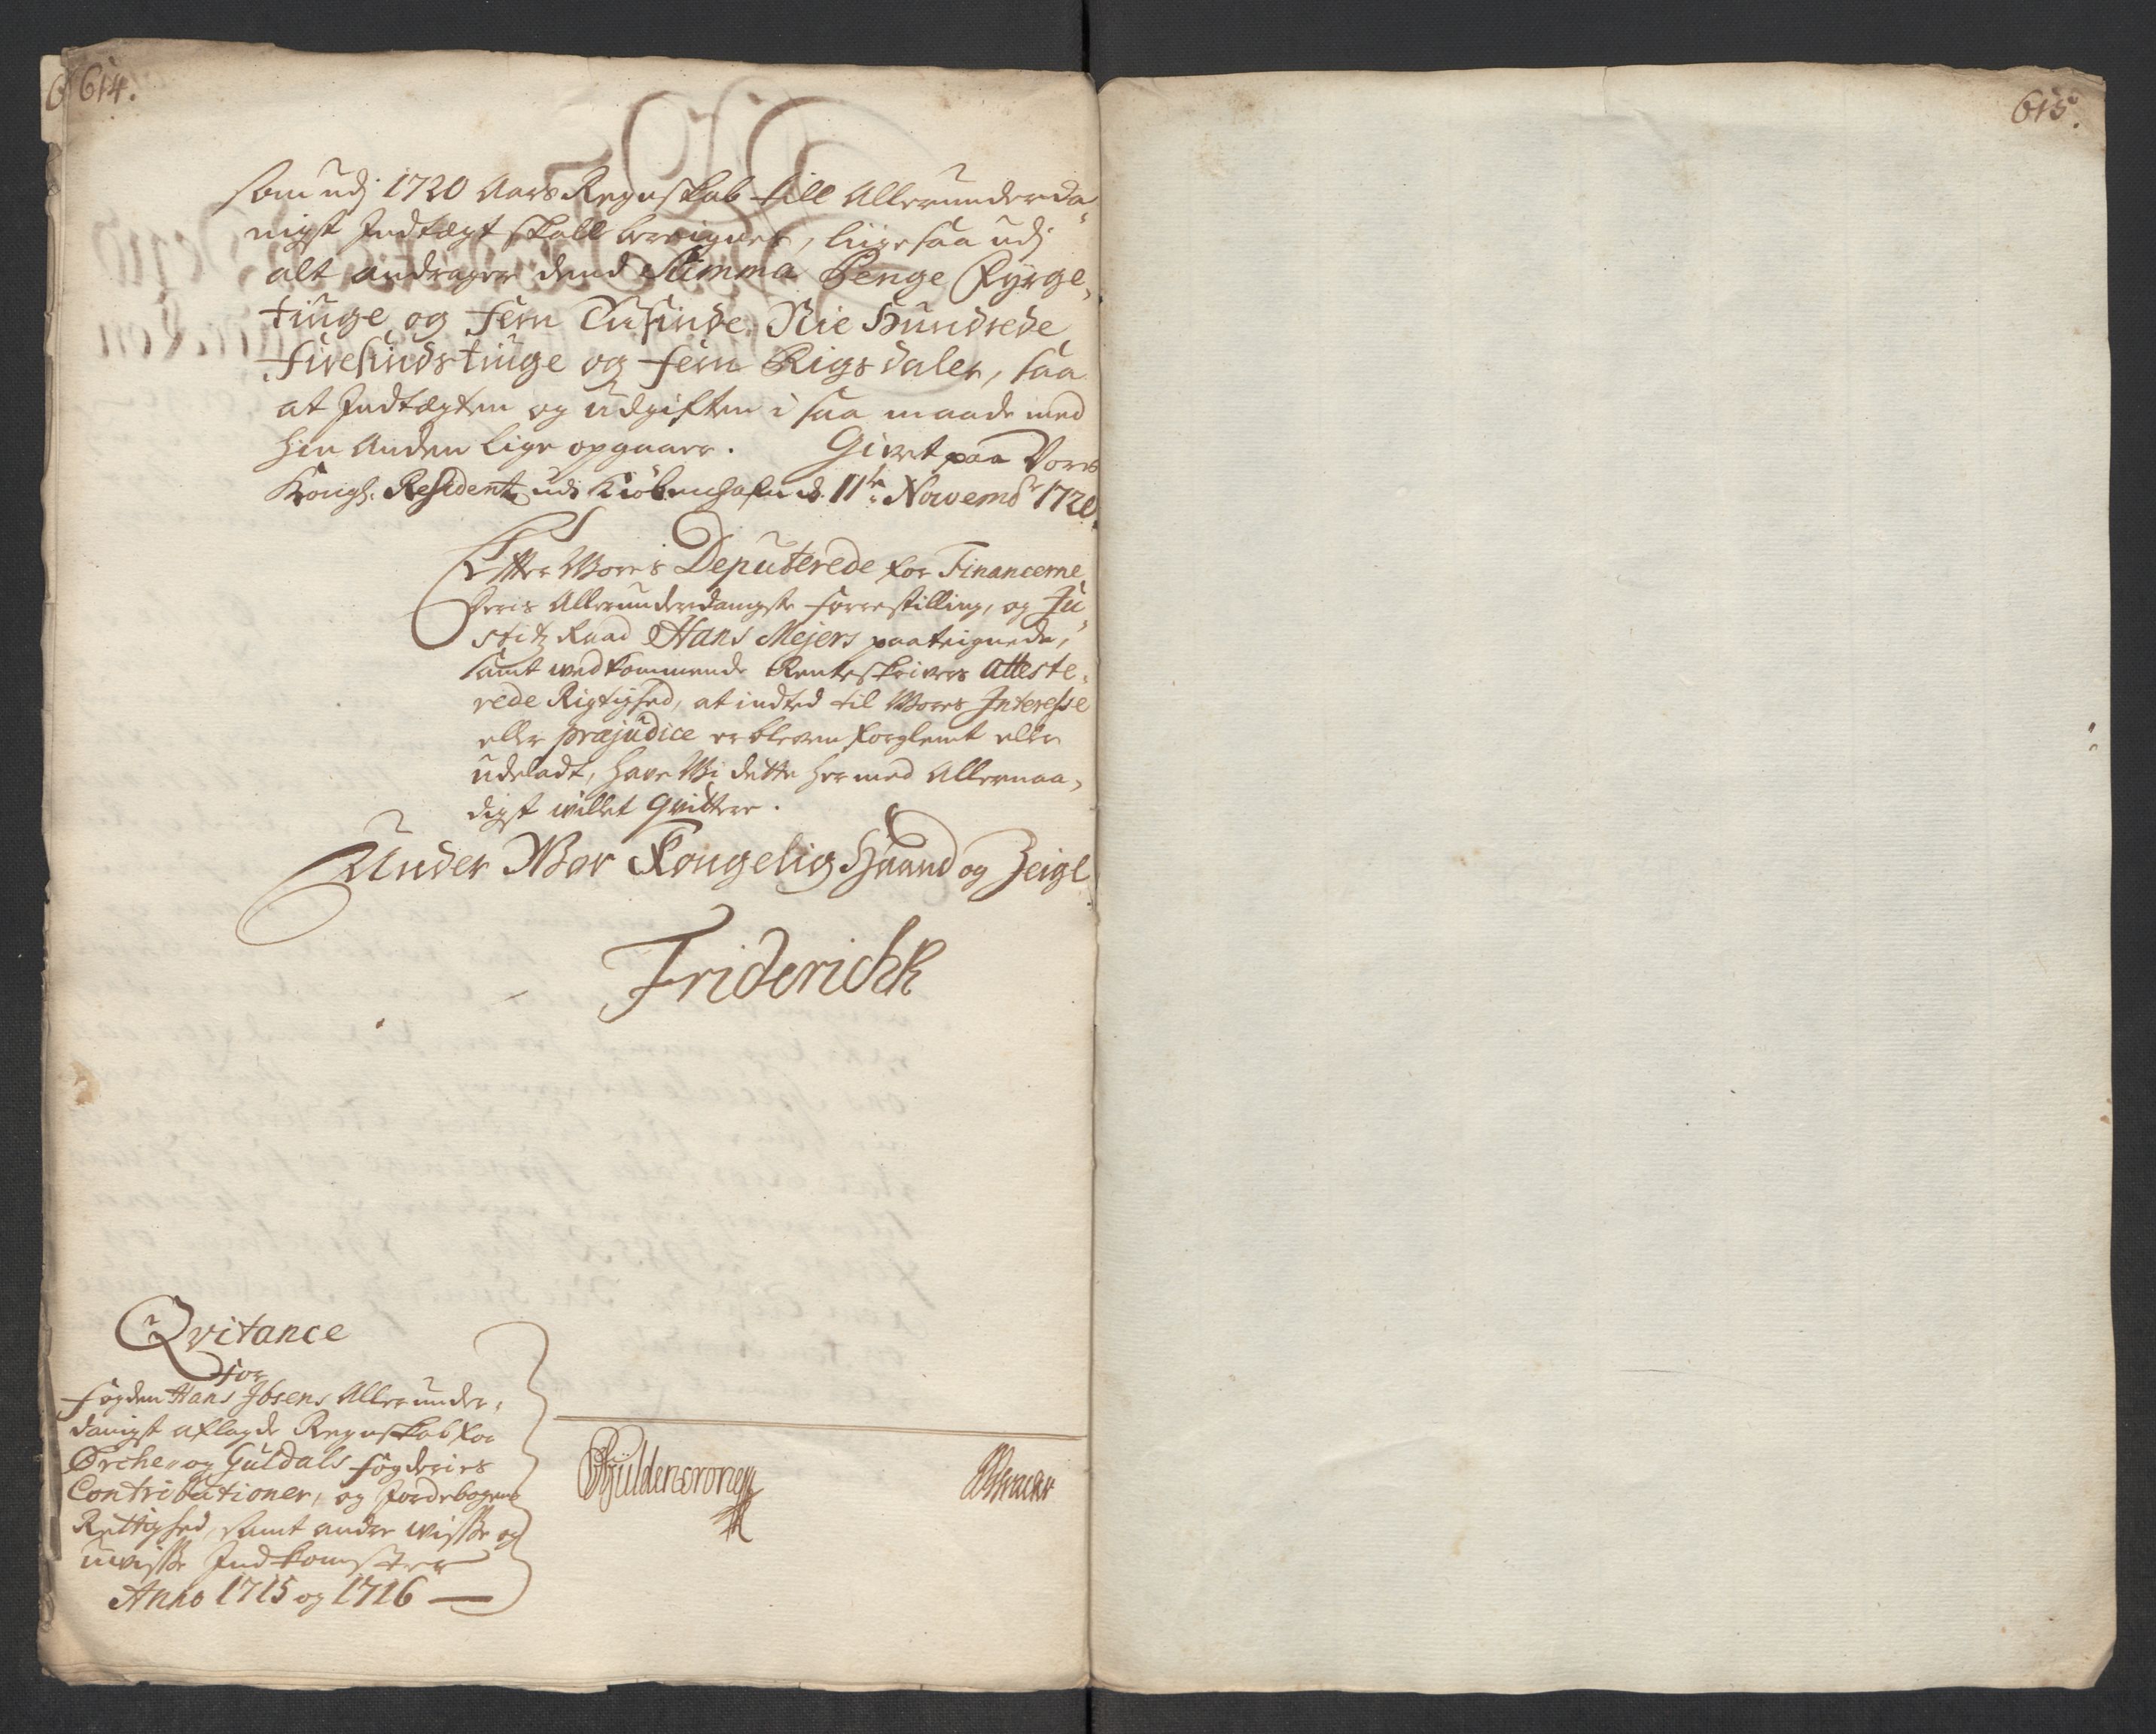 614.
som udj 1720 Aars Regnskab till Allerunderda„
nigst Indtægt skall bereignes, liigesaa udj
alt andrager dend Summa Penge Fyrge„
tiuge og Fem Tusinde Nie Hundrede
Firesindstiuge og fem Rigsdaler, saa
at Indtægten og udgiften i saa maade med
hin Anden lige opgaaer. Givet paa Vores
Kongl: Residentz udi Kiöbenhafn d. 11te Novembr 1720.
Efter Vores Deputerede for Financerne
Deris Allerunderdanigste forrestilling, og Ju„
stitz Raad Hans Mejers paateignede,
samt wedkommende Renteskrivers atteste„
rede Rigtighed, at indted til Wores Interesse
eller præjudice er bleven forglemt eller
udeladt, have Wi dette hermed Allernaa„
digst willet Qvittere.
Under Wor Kongelig Haand og Zeigl
Friderich R
Qvitance
for
fogden Hans Ibsens Allerunder„
danigst aflagde Regnskab for
Orche„ og Guldals fogderies
Contributioner, og Jordebogens
Rettighed, samt andre wisse og
uwisse Indkomster
Anno 1715 og 1716 —
Gyldencrone
615.